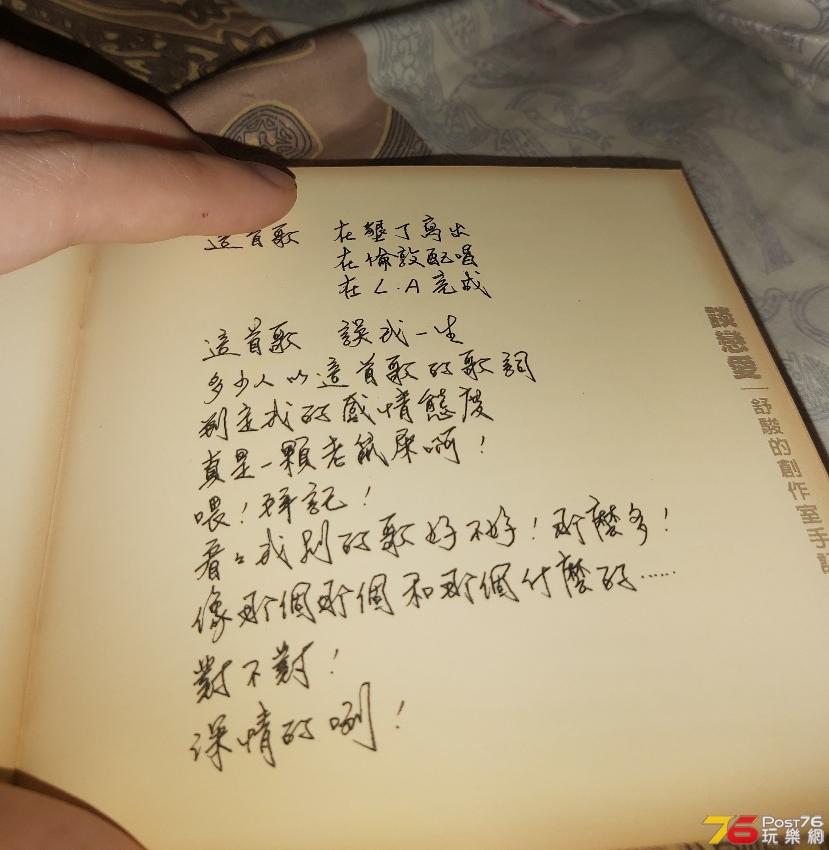 這首歌 在墾丁寫出
在倫敦配唱
在L.A完成
這首歌 誤我一生
多少人以這首歌的歌詞
判定我的感情態度
真是一顆老鼠屎啊!
喂!拜託!
看々我別的歌好不好!那麼多!
像那個那個和那個什麼的……
對不對!
深情的咧!
談戀愛
舒駿的創作室手記
76 POST76
玩樂網